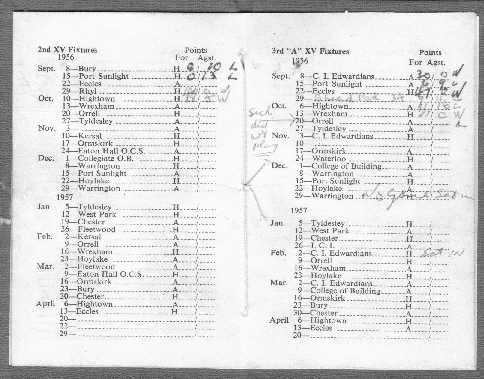 2nd XV Fixtures
Points
1956
For Agst.
Sept. 8—Bury H
15—Port Sunlight H L
22—Eccles A
29—Rhyl H
Oct. 10—Hightown H W
13—Wrexham A
20—Orrell H
27—Tyldesley A
Nov. 3— A
10—Kersal H
17—Ormskirk H
24—Eaton Hall O.C.S. A
Dec. 1—Collegiate O.B. H
8—Warrington H
15—Port Sunlight A
22—Hoylake H
29—Warrington A
1957
Jan 5—Tyldesley H
12—West Park H
19—Chester A
26—Fleetwood H
Feb. 2—Kersal A
9—Orrell A
16—Wrexham H
23—Hoylake A
Mar. 2—Fleetwood A
9—Eaton Hall O.C.S. H
16—Ormskirk A
23—Bury A
30—Chester H
April 6—Hightown A
13—Eccles H
20—
22—
29—
3rd "A" XV Fixtures
Points
1956
For Agst.
Sept. 8—C. I. Edwardians A
15—Port Sunlight A
22—Eccles H
29—
Oct. 6—Hightown A
13—Wrexham H
20—Orrell A
27—Tyldesley A
Nov. 3—C. I. Edwardians H
10—
17—Ormskirk A
24—Waterloo H
Dec. 1—College of Building A
8—Warrington A
15—Port Sunlight H
22—Hoylake A
29—Warrington
Sick
did
not
play
1957
Jan. 5—Tyldesley H
12—West Park A
19—Chester H
26—I. C. I.
Feb. 2—C. I. Edwardians H
9—Orrell H
16—Wrexham A
23—Hoylake H
Mar. 2—C. I. Edwardians A
9—College of Building A
16—Ormskirk H
23—Bury H
30—Chester A
April 6—Hightown H
13—Eccles A
20—